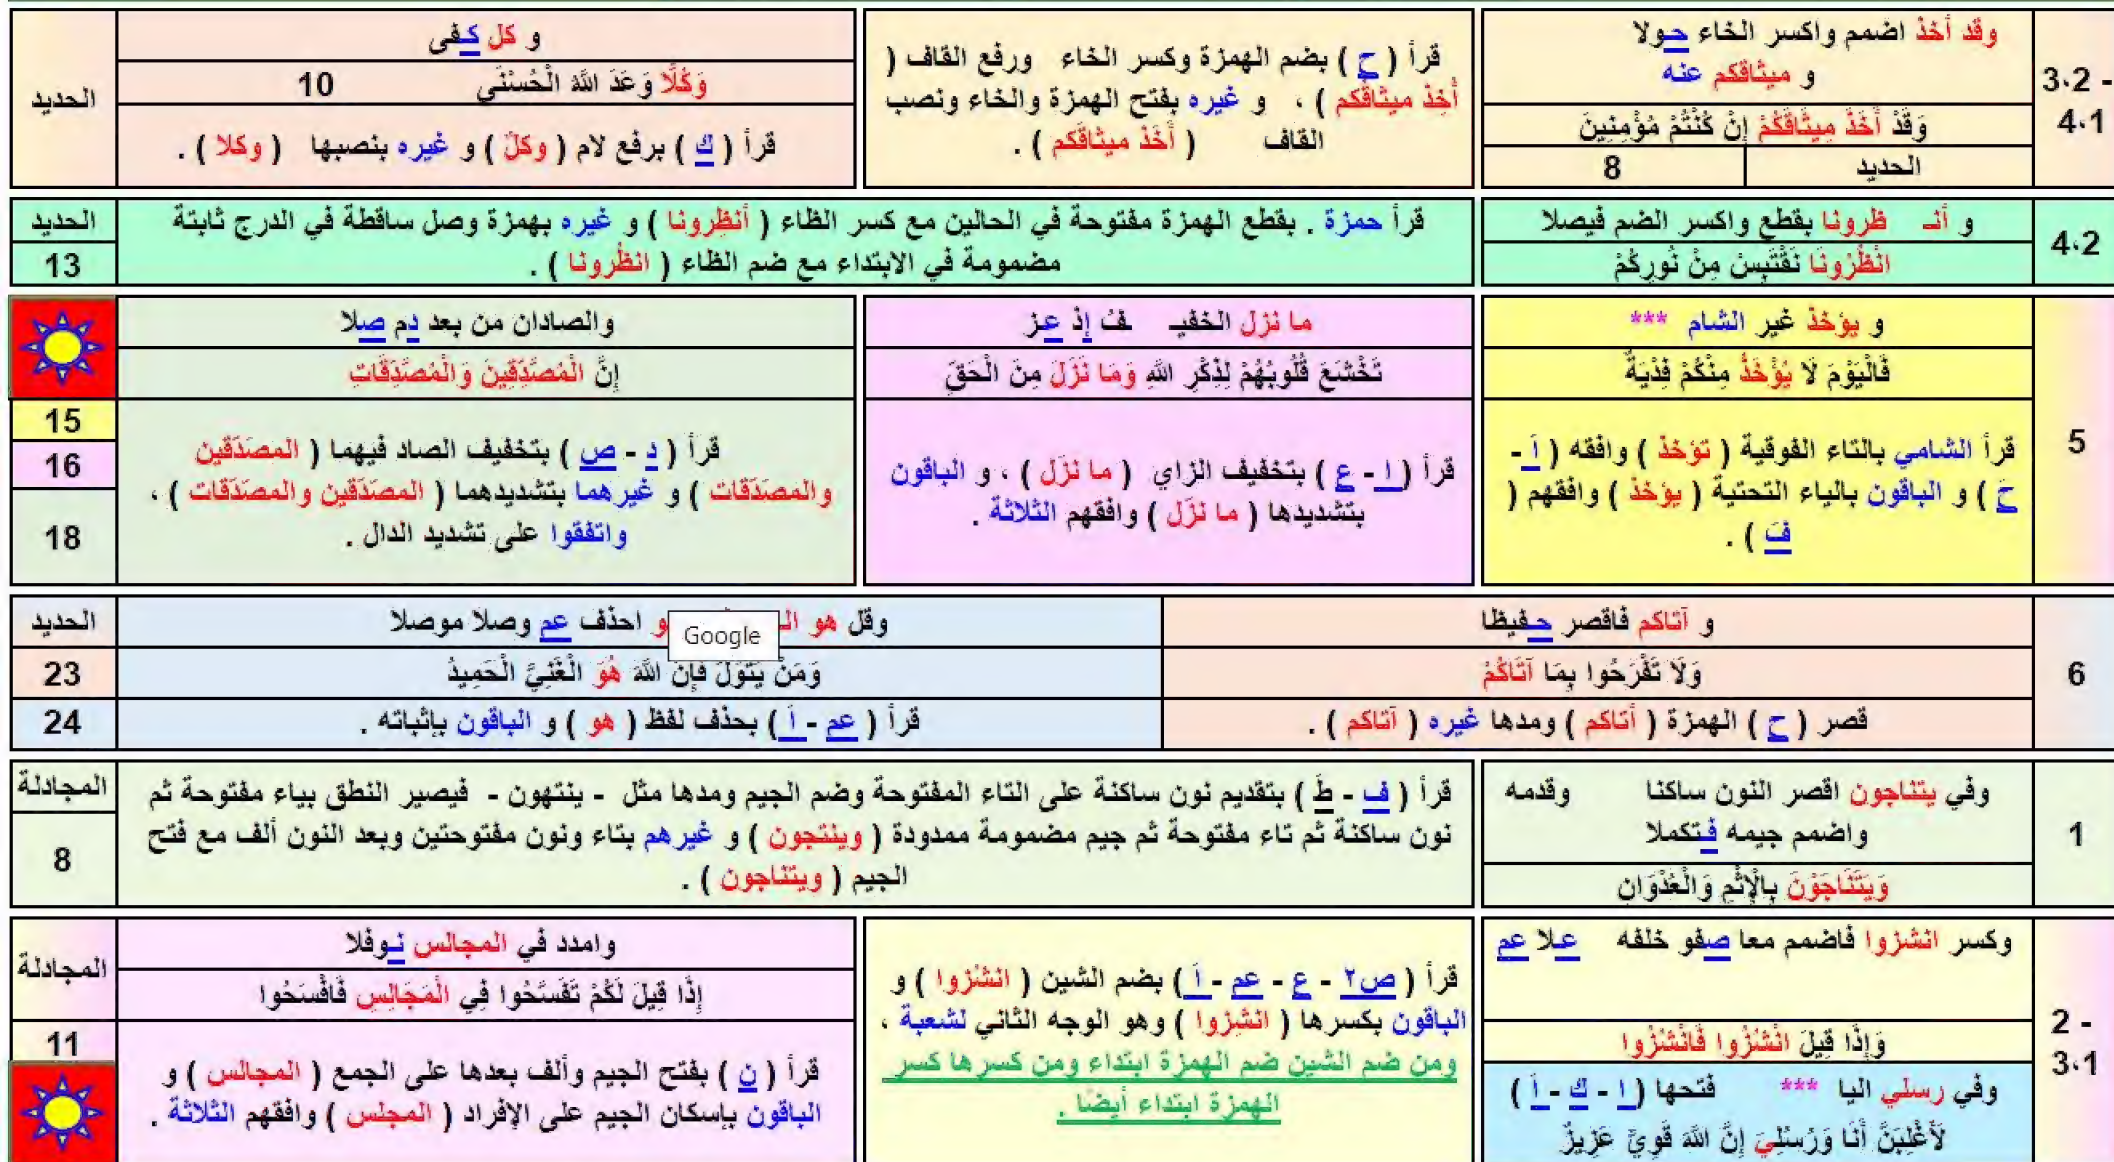 3،2 -
4،1
وقد أخذ اضمم واكسر الخاء حـولا
و ميثاقكم عنه
وَقَدْ أَخَذَ مِيثَاقَكُمْ إِنْ كُنْتُمْ مُؤْمِنِينَ
الحديد 8
قرأ ( ح ) بضم الهمزة وكسر الخاء ورفع القاف (
أُخِذَ ميثاقُكم ) ، و غيره بفتح الهمزة والخاء ونصب
القاف ( أَخَذَ ميثاقَكم ) .
و كل كـفى
وَكُلًّا وَعَدَ اللَّهُ الْحُسْنَى 10
قرأ ( ك ) برفع لام ( وكلٌ ) و غيره بنصبها ( وكلا ) .
الحديد
4،2
و أنـ ظرونا بقطع واكسر الضم فيصلا
انْظُرُونَا نَقْتَبِسْ مِنْ نُورِكُمْ
قرأ حمزة . بقطع الهمزة مفتوحة في الحالين مع كسر الظاء ( أنظِرونا ) و غيره بهمزة وصل ساقطة في الدرج ثابتة
مضمومة في الابتداء مع ضم الظاء ( انظُرونا ) .
الحديد
13
5
و يؤخذ غير الشام ***
فَالْيَوْمَ لَا يُؤْخَذُ مِنْكُمْ فِدْيَةٌ
قرأ الشامي بالتاء الفوقية ( تؤخذ ) وافقه ( أَ -
حَ ) و الباقون بالياء التحتية ( يؤخذ ) وافقهم (
فَ ) .
ما نزل الخفيـ ـفُ إذْ عـز
تَخْشَعَ قُلُوبُهُمْ لِذِكْرِ اللَّهِ وَمَا نَزَلَ مِنَ الْحَقِّ
قرأ ( ا - ع ) بتخفيف الزاي ( ما نزَل ) ، و الباقون
بتشديدها ( ما نزّل ) وافقهم الثلاثة .
والصادان من بعد دم صـلا
إِنَّ الْمُصَّدِّقِينَ وَالْمُصَّدِّقَاتِ
قرأ ( د - ص ) بتخفيف الصاد فيهما ( المصَدّقين
والمصَدّقات ) و غيرهما بتشديدهما ( المصّدّقين والمصّدّقات ) ،
واتفقوا على تشديد الدال .
15
16
18
6
و آتاكم فاقصر حـفيظا
وَلَا تَفْرَحُوا بِمَا آتَاكُمْ
قصر ( ح ) الهمزة ( أتاكم ) ومدها غيره ( آتاكم ) .
وقل هو الـ و احذف عم وصلا موصلا
Google
وَمَنْ يَتَوَلَّ فَإِنَّ اللَّهَ هُوَ الْغَنِيُّ الْحَمِيدُ
قرأ ( عم - أَ ) بحذف لفظ ( هو ) و الباقون بإثباته .
الحديد
23
24
1
وفي يتناجون اقصر النون ساكنا وقدمه
واضمم جيمه فـتكملا
وَيَتَنَاجَوْنَ بِالْإِثْمِ وَالْعُدْوَانِ
قرأ ( ف - طَ ) بتقديم نون ساكنة على التاء المفتوحة وضم الجيم ومدها مثل - ينتهون - فيصير النطق بياء مفتوحة ثم
نون ساكنة ثم تاء مفتوحة ثم جيم مضمومة ممدودة ( وينتجون ) و غيرهم بتاء ونون مفتوحتين وبعد النون ألف مع فتح
الجيم ( ويتناجون ) .
المجادلة
8
2 -
3،1
وكسر انشزوا فاضمم معا صفو خلفه عـلا عم
وَإِذَا قِيلَ انْشُزُوا فَانْشُزُوا
وفي رسلي اليا *** فتحها ( ا - ك - أَ )
لَأَغْلِبَنَّ أَنَا وَرُسُلِيَ إِنَّ اللَّهَ قَوِيٌّ عَزِيزٌ
قرأ ( ص٢ - ع - عم - أَ ) بضم الشين ( انشُزوا ) و
الباقون بكسرها ( انشِزوا ) وهو الوجه الثاني لشعبة ،
ومن ضم الشين ضم الهمزة ابتداء ومن كسرها كسر
الهمزة ابتداء أيضا .
وامدد في المجالس نـوفلا
إِذَا قِيلَ لَكُمْ تَفَسَّحُوا فِي الْمَجَالِسِ فَافْسَحُوا
قرأ ( ن ) بفتح الجيم وألف بعدها على الجمع ( المجالس ) و
الباقون بإسكان الجيم على الإفراد ( المجلس ) وافقهم الثلاثة .
المجادلة
11